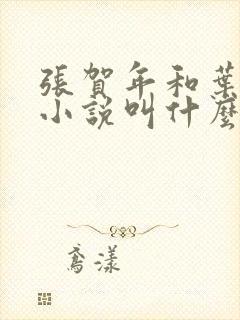 張賀年和葉
小說叫什麼
鳶漾